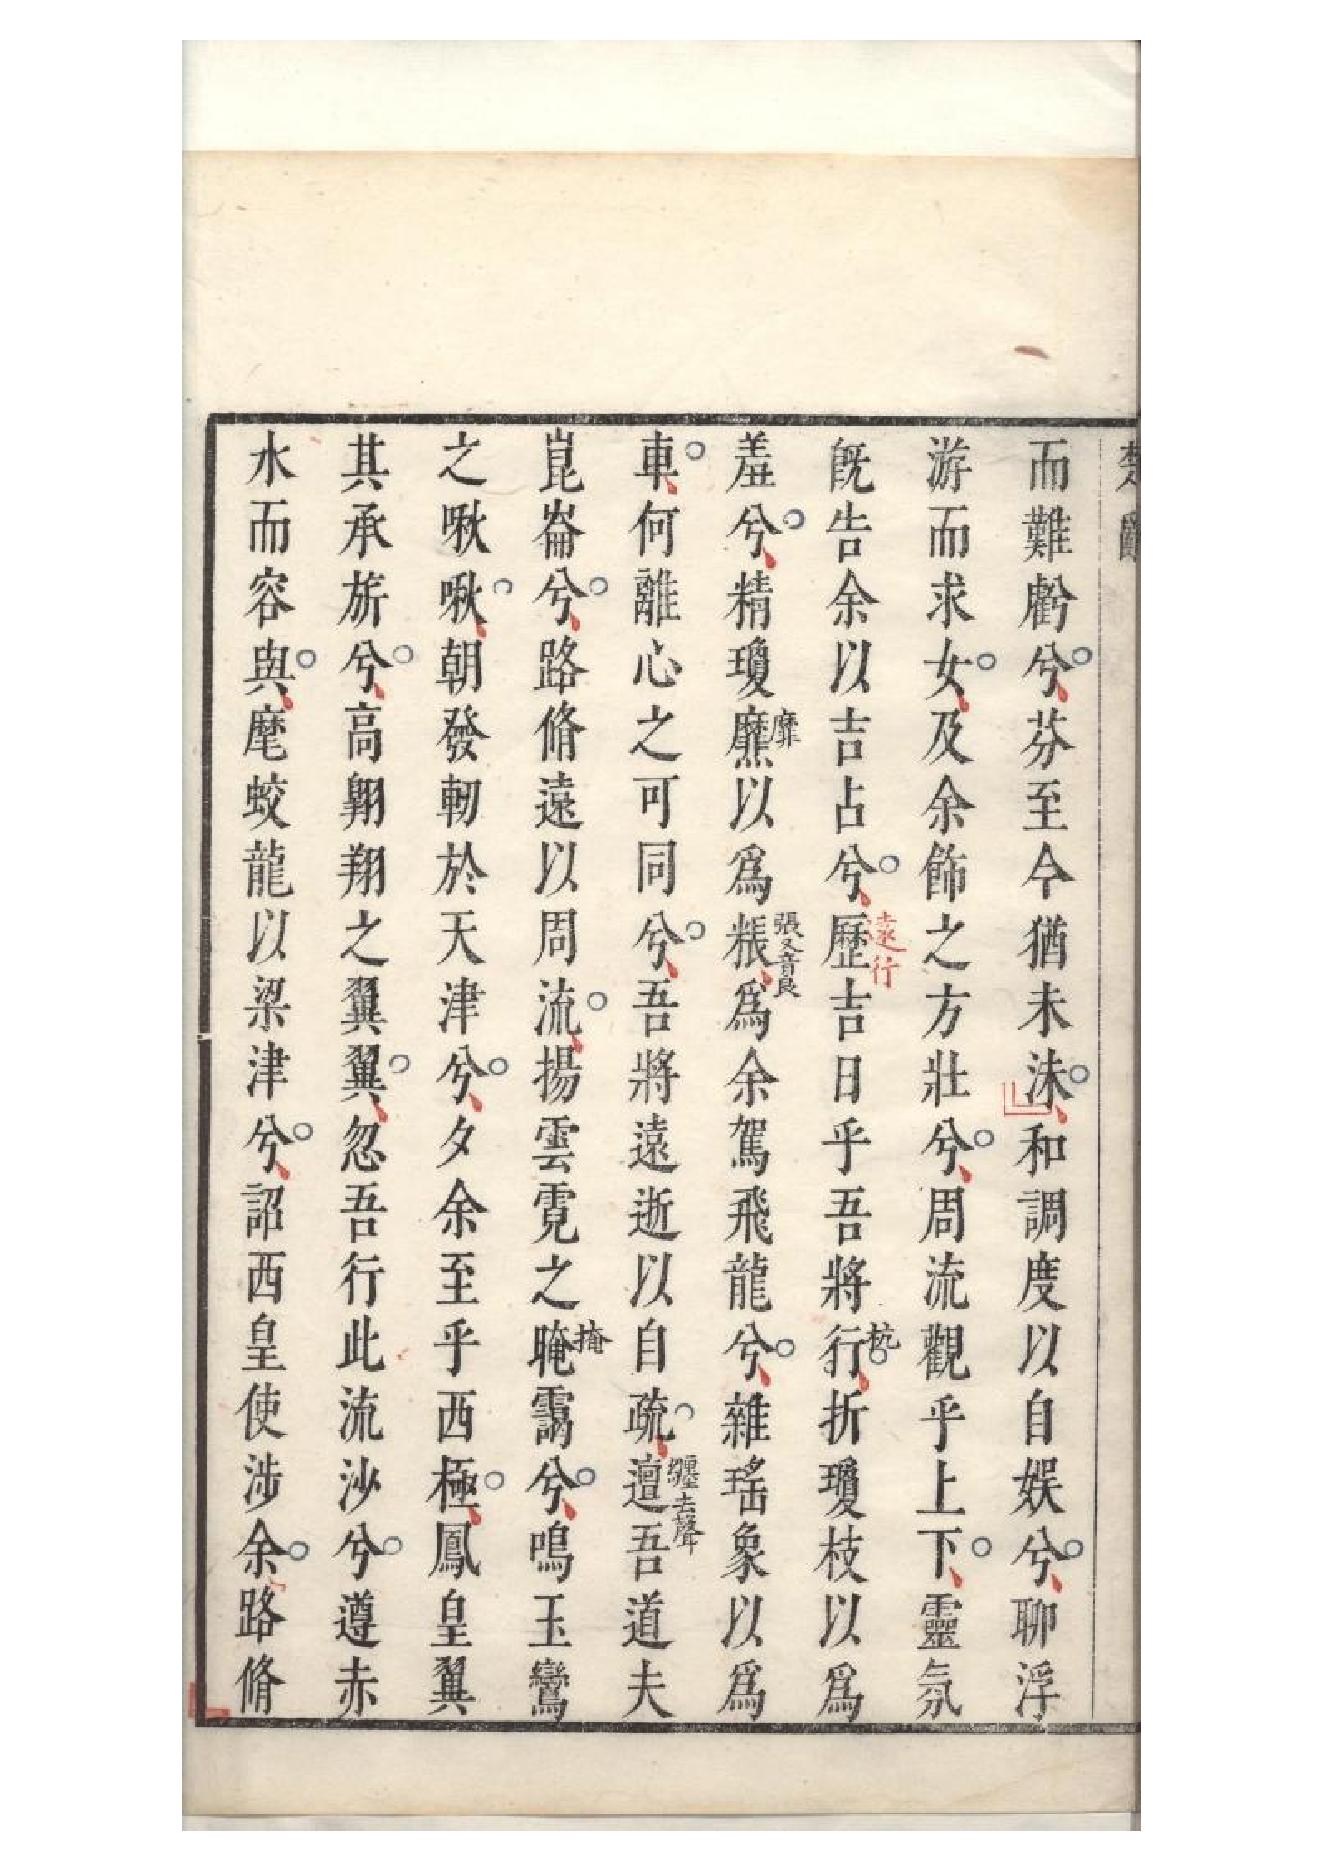 而難虧兮芬至今猶未沬和調度以自娛兮聊浮
游而求女及余飾之方壯兮周流觀乎上下靈氛
旣告余以吉占兮歷吉日乎吾將行折瓊枝以爲
遠行
杭
羞兮精瓊爢以爲粻爲余駕飛龍兮雜瑤象以爲
靡
張又音良
車何離心之可同兮吾將遠逝以自疏邅吾道夫
纏去聲
崑崙兮路脩遠以周流揚雲霓之晻靄兮鳴玉鸞
掩
之啾啾朝發軔於天津兮夕余至乎西極鳳皇翼
其承旂兮高翺翔之翼翼忽吾行此流沙兮遵赤
水而容與麾蛟龍以梁津兮詔西皇使涉余路脩